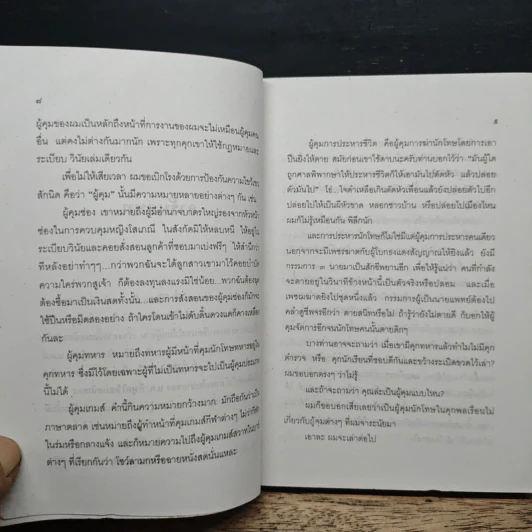 ๘
ผู้คุมของผมเป็นหลักถึงหน้าที่การงานของผมจะไม่เหมือนผู้คุมคน
อื่น แต่คงไม่ต่างกันมากนัก เพราะทุกคุกเขาใช้กฎหมายและ
ระเบียบ วินัยเล่มเดียวกัน
เพื่อไม่ให้เสียเวลา ผมขอเบิกโรงด้วยการป้องกันความไขว้เขว
สักนิด คือว่า "ผู้คุม" นั้นมีความหมายหลายอย่างต่างๆ กัน เช่น
ผู้คุมซ่อง เขาหมายถึงผู้มีอำนาจบาตรใหญ่รองจากหัวหน้า
ซ่องในการควบคุมหญิงโสเภณี ในสังกัดมิให้หลบหนี ให้อยู่ใน
ระเบียบวินัยและคอยสั่งสอนลูกค้าที่ชอบมาเบ่งฟรีๆ ให้สำนึกว่า
ทีหลังอย่าทำๆๆ...กว่าพวกฉันจะได้ลูกสาวเขามาคอยบำบัด
ความใคร่พวกสูเจ้า ก็ต้องลงทุนลงแรงมิใช่น้อย...พวกฉันต้อง
ต้องซื้อมาเป็นเงินสดทั้งนั้น...และการสั่งสอนของผู้คุมซ่องก็มักจะ
ใช้ปืนหรือมีดสองอย่าง ถ้าใครโดนเข้าไม่ดับดิ้นดวงแดก็คางเหลือง
กันละ
ผู้คุมทหาร หมายถึงทหารผู้มีหน้าที่คุมนักโทษทหารอยู่ใน
คุกทหาร ซึ่งมีไว้โดยเฉพาะผู้ที่ไม่เป็นทหารจะไปเป็นผู้คุมประเภท
นี้ไม่ได้
ผู้คุมเกมส์ คำนี้กินความหมายกว้างมาก มักถือกันว่าเป็น
ภาษาตลาด เช่นหมายถึงผู้ทำหน้าที่คุมเกมส์กีฬาต่างๆ ไม่ว่ากีฬา
ในร่มหรือกลางแจ้ง และก็หมายความไปถึงผู้คุมเกมส์สวาทในบาร์
ต่างๆ ที่เรียกกันว่า โชว์ลามกหรือฉายหนังสดนั่นแหละ
๙
ผู้คุมการประหารชีวิต คือผู้คุมการฆ่านักโทษโดยการเอา
ปืนยิงให้ตาย สมัยก่อนเขาใช้ดาบนะครับท่านบอกไว้ว่า "มันผู้ใด
ถูกศาลพิพากษาให้ประหารชีวิตก็ให้เอามันไปตัดหัว แล้วปล่อย
ตัวมันไป" โอ๋..ใจดำเหลือเกินตัดหัวเพื่อนแล้วยังปล่อยตัวไปอีก
ปล่อยไปเป็นผีหัวขาด หลอกชาวบ้าน หรือปล่อยไปเมืองไหน
ผมก็ไม่รู้เหมือนกัน พิลึกนัก
และการประหารนักโทษก็ไม่ใช่มีแต่ผู้คุมการประหารคนเดียว
นอกจากจะมีเพชฌฆาตกับผู้โบกธงแดงสัญญาณให้ยิงแล้ว ยังมี
กรรมการ ๓ นายมาเป็นสักขีพยานอีก เพื่อให้รู้แน่ว่า คนที่กำลัง
จะตายอยู่ในวินาทีข้างหน้านี้เป็นตัวจริงหรือปลอม และเมื่อ
เพชฌฆาตยิงไปชุดหนึ่งแล้ว กรรมการผู้เป็นนายแพทย์ต้องไป
คลำดูชีพจรอีกว่า ตายสนิทหรือไม่ ถ้ารู้ว่ายังไม่ตายดี ก็บอกให้ผู้
คุมจัดการอีกจนนักโทษคนนั้นตายดิกๆ
บางท่านอาจจะถามว่า เมื่อเขามีคุกทหารแล้วทำไมไม่มีคุก
ตำรวจ หรือ คุกนักเรียนที่ชอบตีกันและขว้างระเบิดขวดไว้เล่า?
ผมขอบอกตรงๆ ว่าไม่รู้
และถ้าจะถามว่า คุณล่ะเป็นผู้คุมแบบไหน?
ผมก็ขอบอกเสียเลยว่าเป็นผู้คุมนักโทษในคุกพลเรือนไม่
เกี่ยวกับผู้คุมต่างๆ ที่ผมจาระนัยมา
เอาละ ผมจะเล่าต่อไป